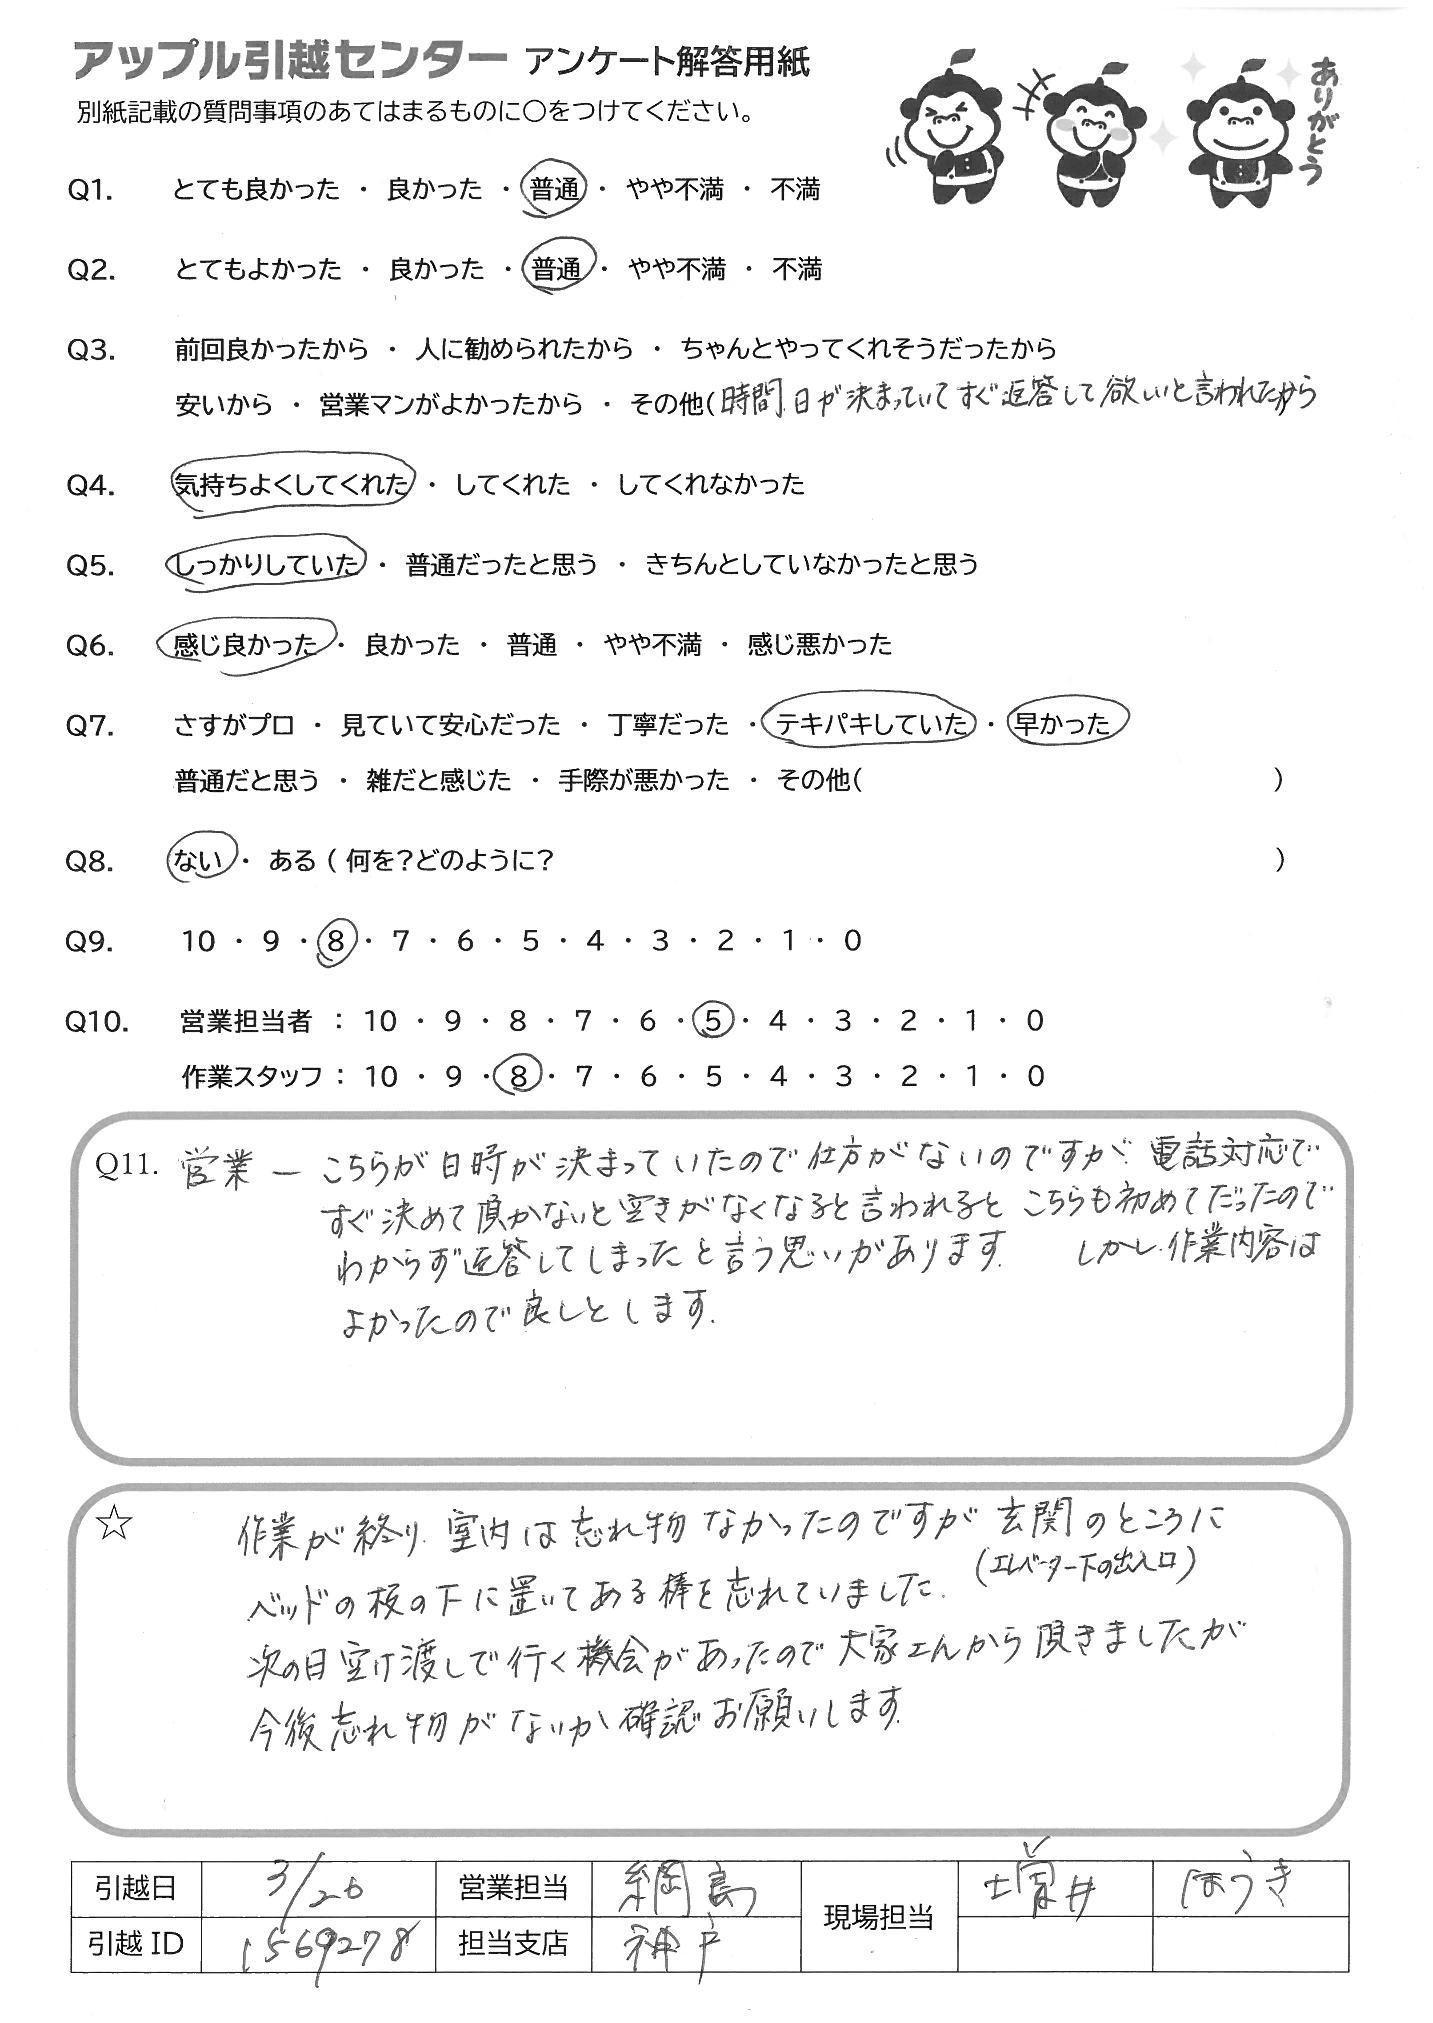 アップル引越センター アンケート解答用紙
別紙記載の質問事項のあてはまるものに○をつけてください。
ありがとう
Q1. とても良かった ・ 良かった ・ 普通 ・ やや不満 ・ 不満
Q2. とてもよかった ・ 良かった ・ 普通 ・ やや不満 ・ 不満
Q3. 前回良かったから ・ 人に勧められたから ・ ちゃんとやってくれそうだったから
安いから ・ 営業マンがよかったから ・ その他( 時間.日が決まっていてすぐ返答して欲しいと言われたから
Q4. 気持ちよくしてくれた ・ してくれた ・ してくれなかった
Q5. しっかりしていた ・ 普通だったと思う ・ きちんとしていなかったと思う
Q6. 感じ良かった ・ 良かった ・ 普通 ・ やや不満 ・ 感じ悪かった
Q7. さすがプロ ・ 見ていて安心だった ・ 丁寧だった ・ テキパキしていた ・ 早かった
普通だと思う ・ 雑だと感じた ・ 手際が悪かった ・ その他( )
Q8. ない ・ ある ( 何を?どのように? )
Q9. 10 ・ 9 ・ 8 ・ 7 ・ 6 ・ 5 ・ 4 ・ 3 ・ 2 ・ 1 ・ 0
Q10. 営業担当者 : 10 ・ 9 ・ 8 ・ 7 ・ 6 ・ 5 ・ 4 ・ 3 ・ 2 ・ 1 ・ 0
作業スタッフ : 10 ・ 9 ・ 8 ・ 7 ・ 6 ・ 5 ・ 4 ・ 3 ・ 2 ・ 1 ・ 0
Q11. 営業 ー こちらが日時が決まっていたので仕方がないのですが.電話対応で
すぐ決めて頂かないと空きがなくなると言われると こちらも初めてだったので
わからず返答してしまったと言う思いがあります. しかし.作業内容は
よかったので良しとします.
☆ 作業が終り.室内は忘れ物なかったのですが玄関のところに
(エレベーター下の出入口)
ベッドの板の下に置いてある棒を忘れていました.
次の日空け渡しで行く機会があったので大家さんから頂きましたが
今後忘れ物がないか確認お願いします.
引越日 3/26 営業担当 綱島 現場担当 ほうき
引越 ID 1569278 担当支店 神戸